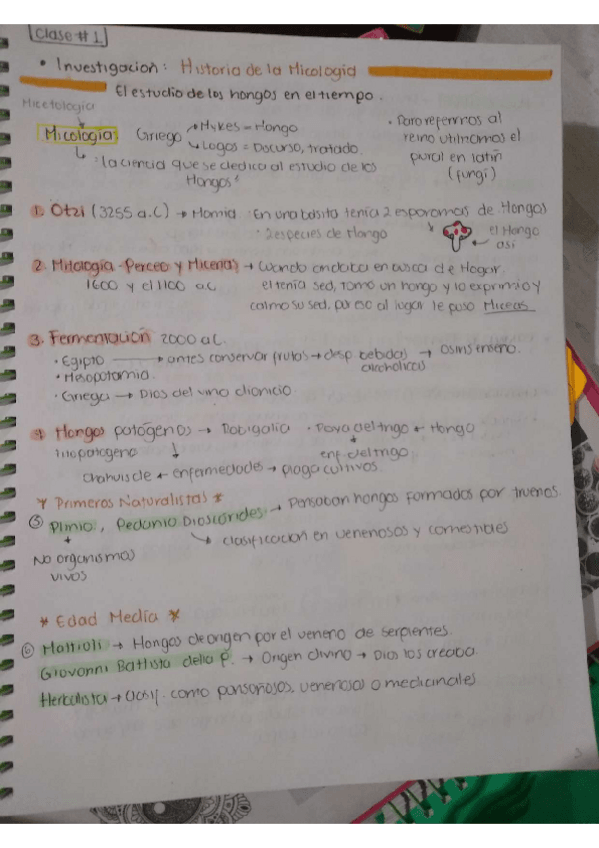 Clase #1
• Investigacion: Historia de la Micologia
El estudio de los hongos en el tiempo.
Micetologia
Micologia Griego Mykes = Hongo
Logos = Discurso, tratado.
"la ciencia que se dedica al estudio de los
Hongos"
• Para referirnos al
reino utilizamos el
pural en latín
(fungi)
1. Otzi (3255 a.C) → Momia En una bolsita tenia 2 esporomas de Hongos
2 especies de Hongo
el Hongo
asi
2. Mitología - Perceo y Micenas → Cuando andaba en busca de Hogar
1600 y el 1100 a.c el tenía sed, tomo un hongo y lo exprimio y
calmo su sed, por eso al lugar le puso Miceas
3. Fermentación 2000 a.C.
• Egipto → antes conservar frutos → desp bebidas → Osiris enseño.
alcoholicas
• Mesopotamia.
• Griega → Dios del vino dionicio
Hongos patógenos → Robigalia • Roya del trigo ← Hongo
fitopatogeno enf. del trigo
chahuiscle ← enfermedades → plaga cultivos.
* Primeros Naturalistas *
5 Plinio, Pedanio Dioscórides → Pensaban hongos formados por truenos.
clasificacion en venenosos y comestibles
No organismos
vivos
* Edad Media *
6 Mattioli → Hongos de origen por el veneno de serpientes.
Giovanni Battista della P. → Origen divino → Dios los creaba.
Herbalista → Clasif. como ponsoñosos, venenosos o medicinales